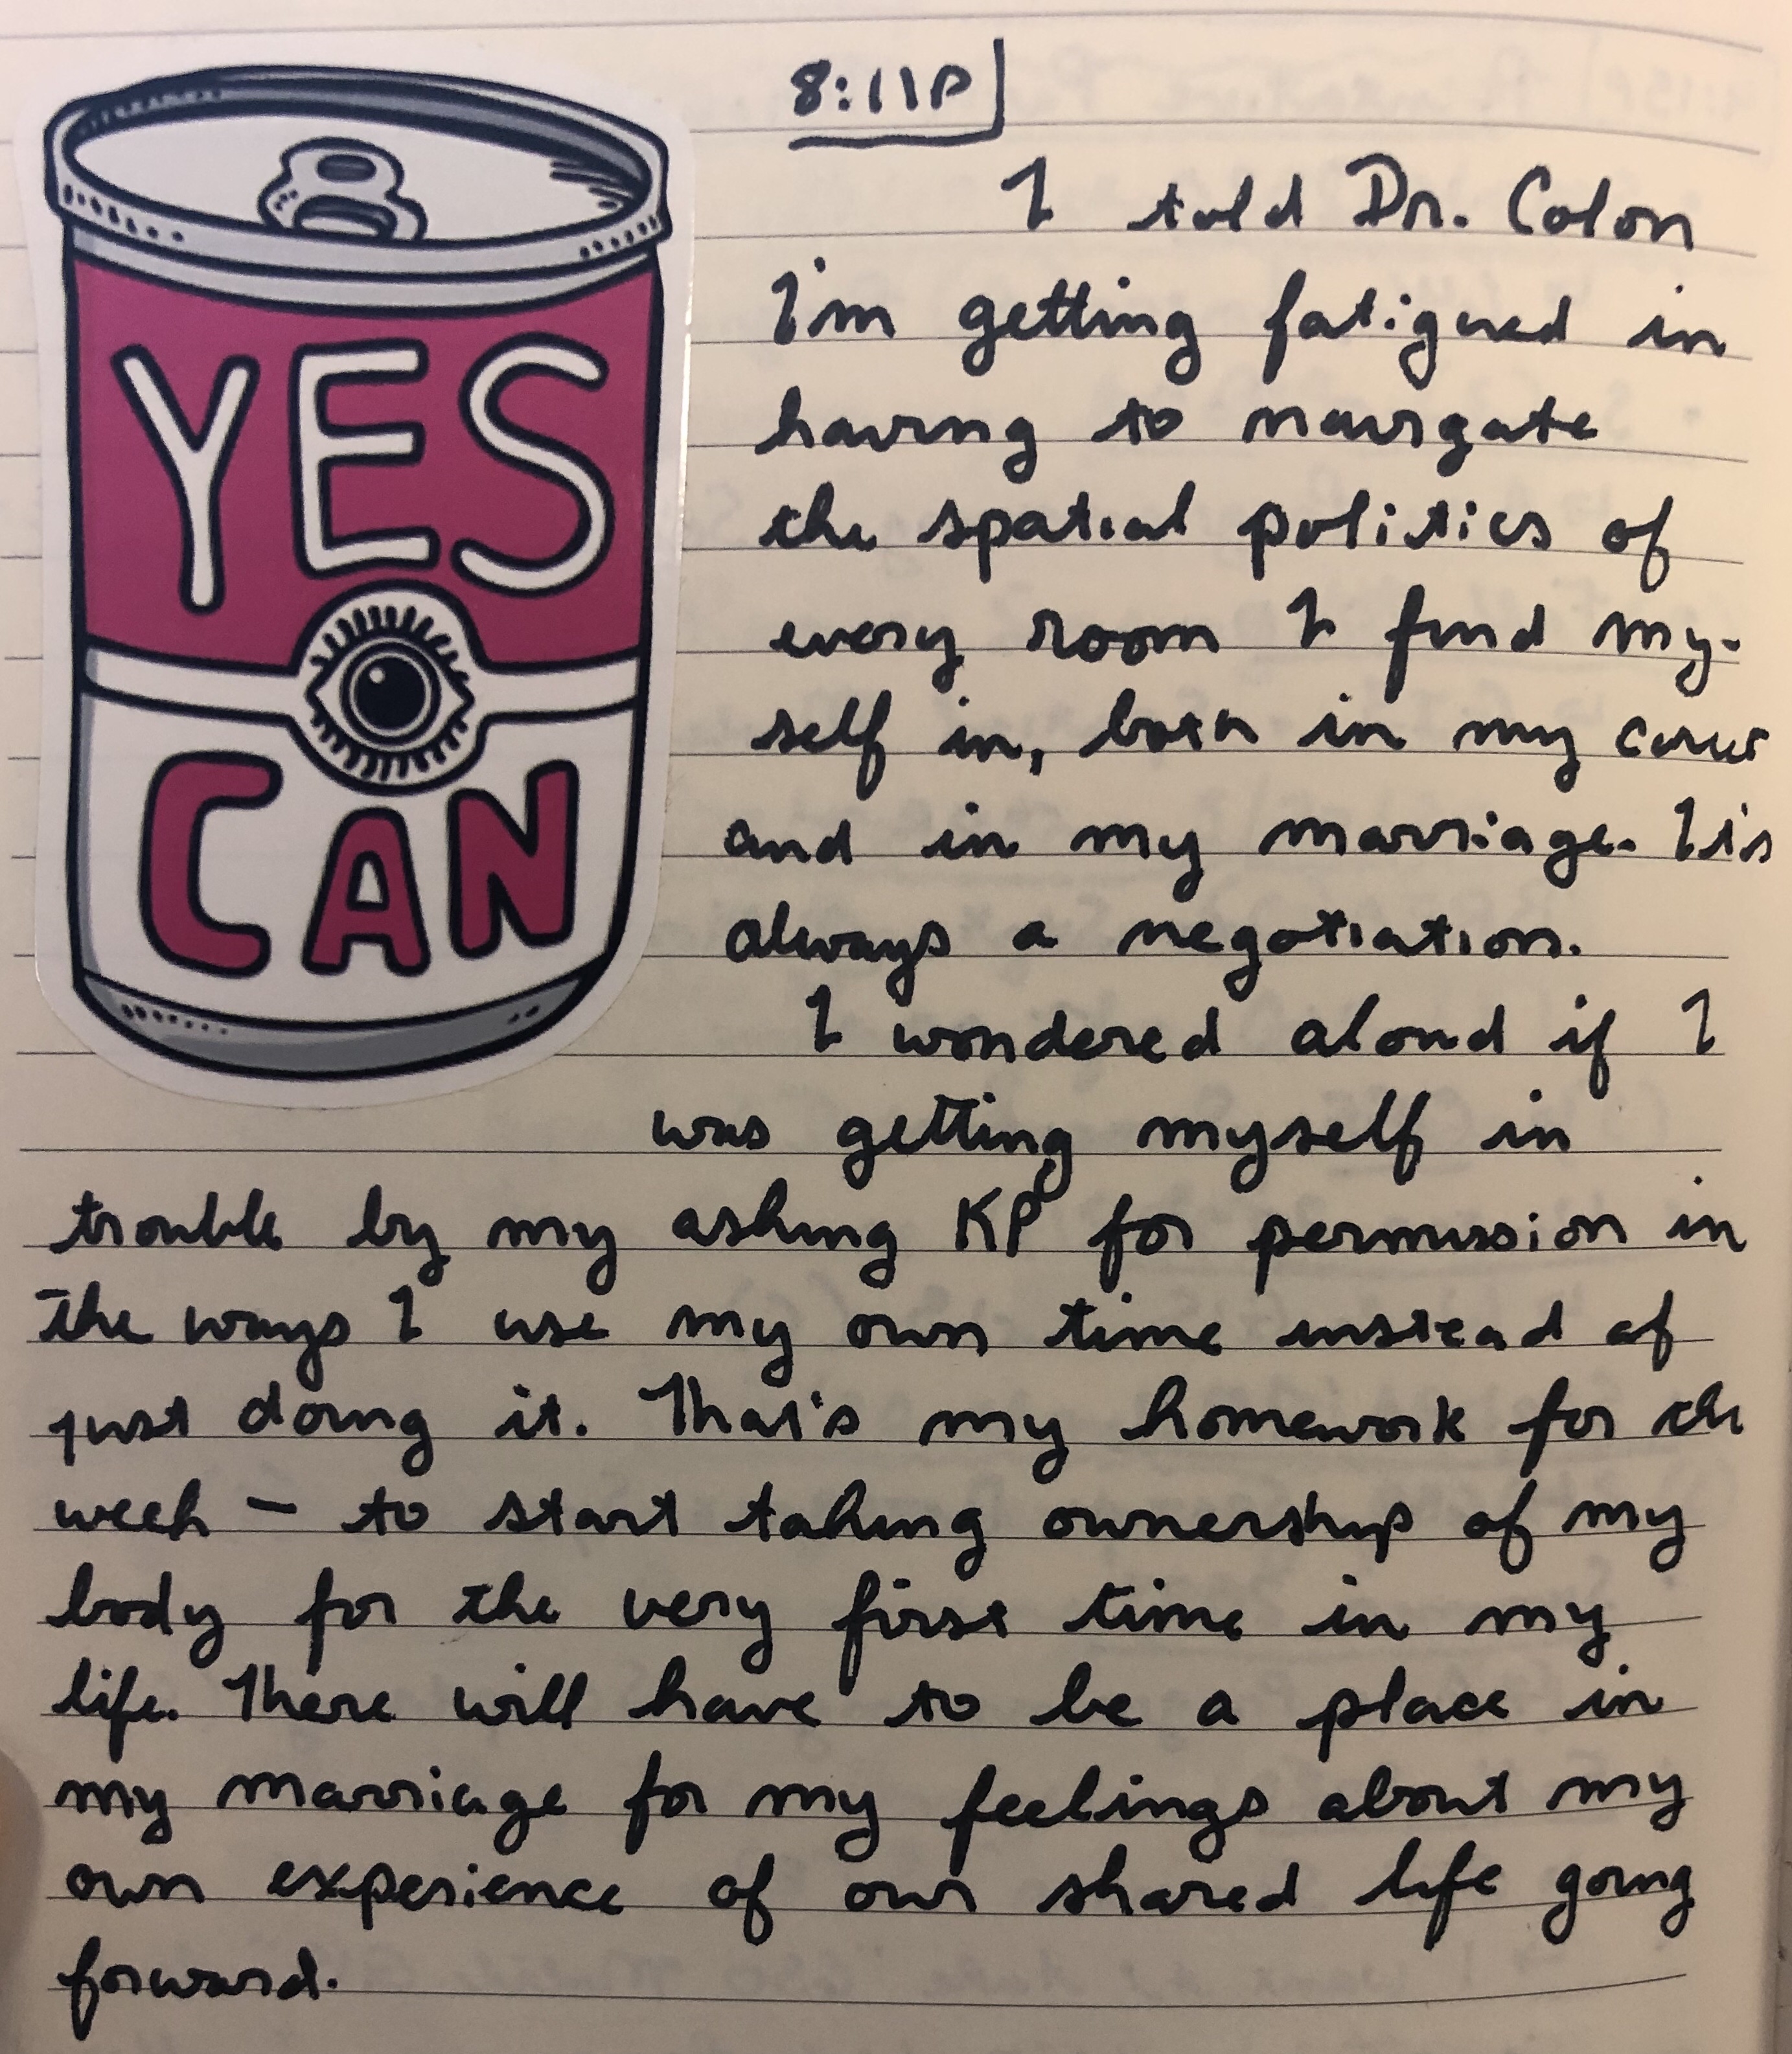 YES
CAN
8:11P
I told Dr. Colon
I'm getting fatigued in
having to navigate
the spatial politics of
every room I find my-
self in, both in my career
and in my marriage. It's
always a negotiation.
I wondered aloud if I
was getting myself in
trouble by my asking KP for permission in
the ways I use my own time instead of
just doing it. That's my homework for the
week — to start taking ownership of my
body for the very first time in my
life. There will have to be a place in
my marriage for my feelings about my
own experience of our shared life going
forward.